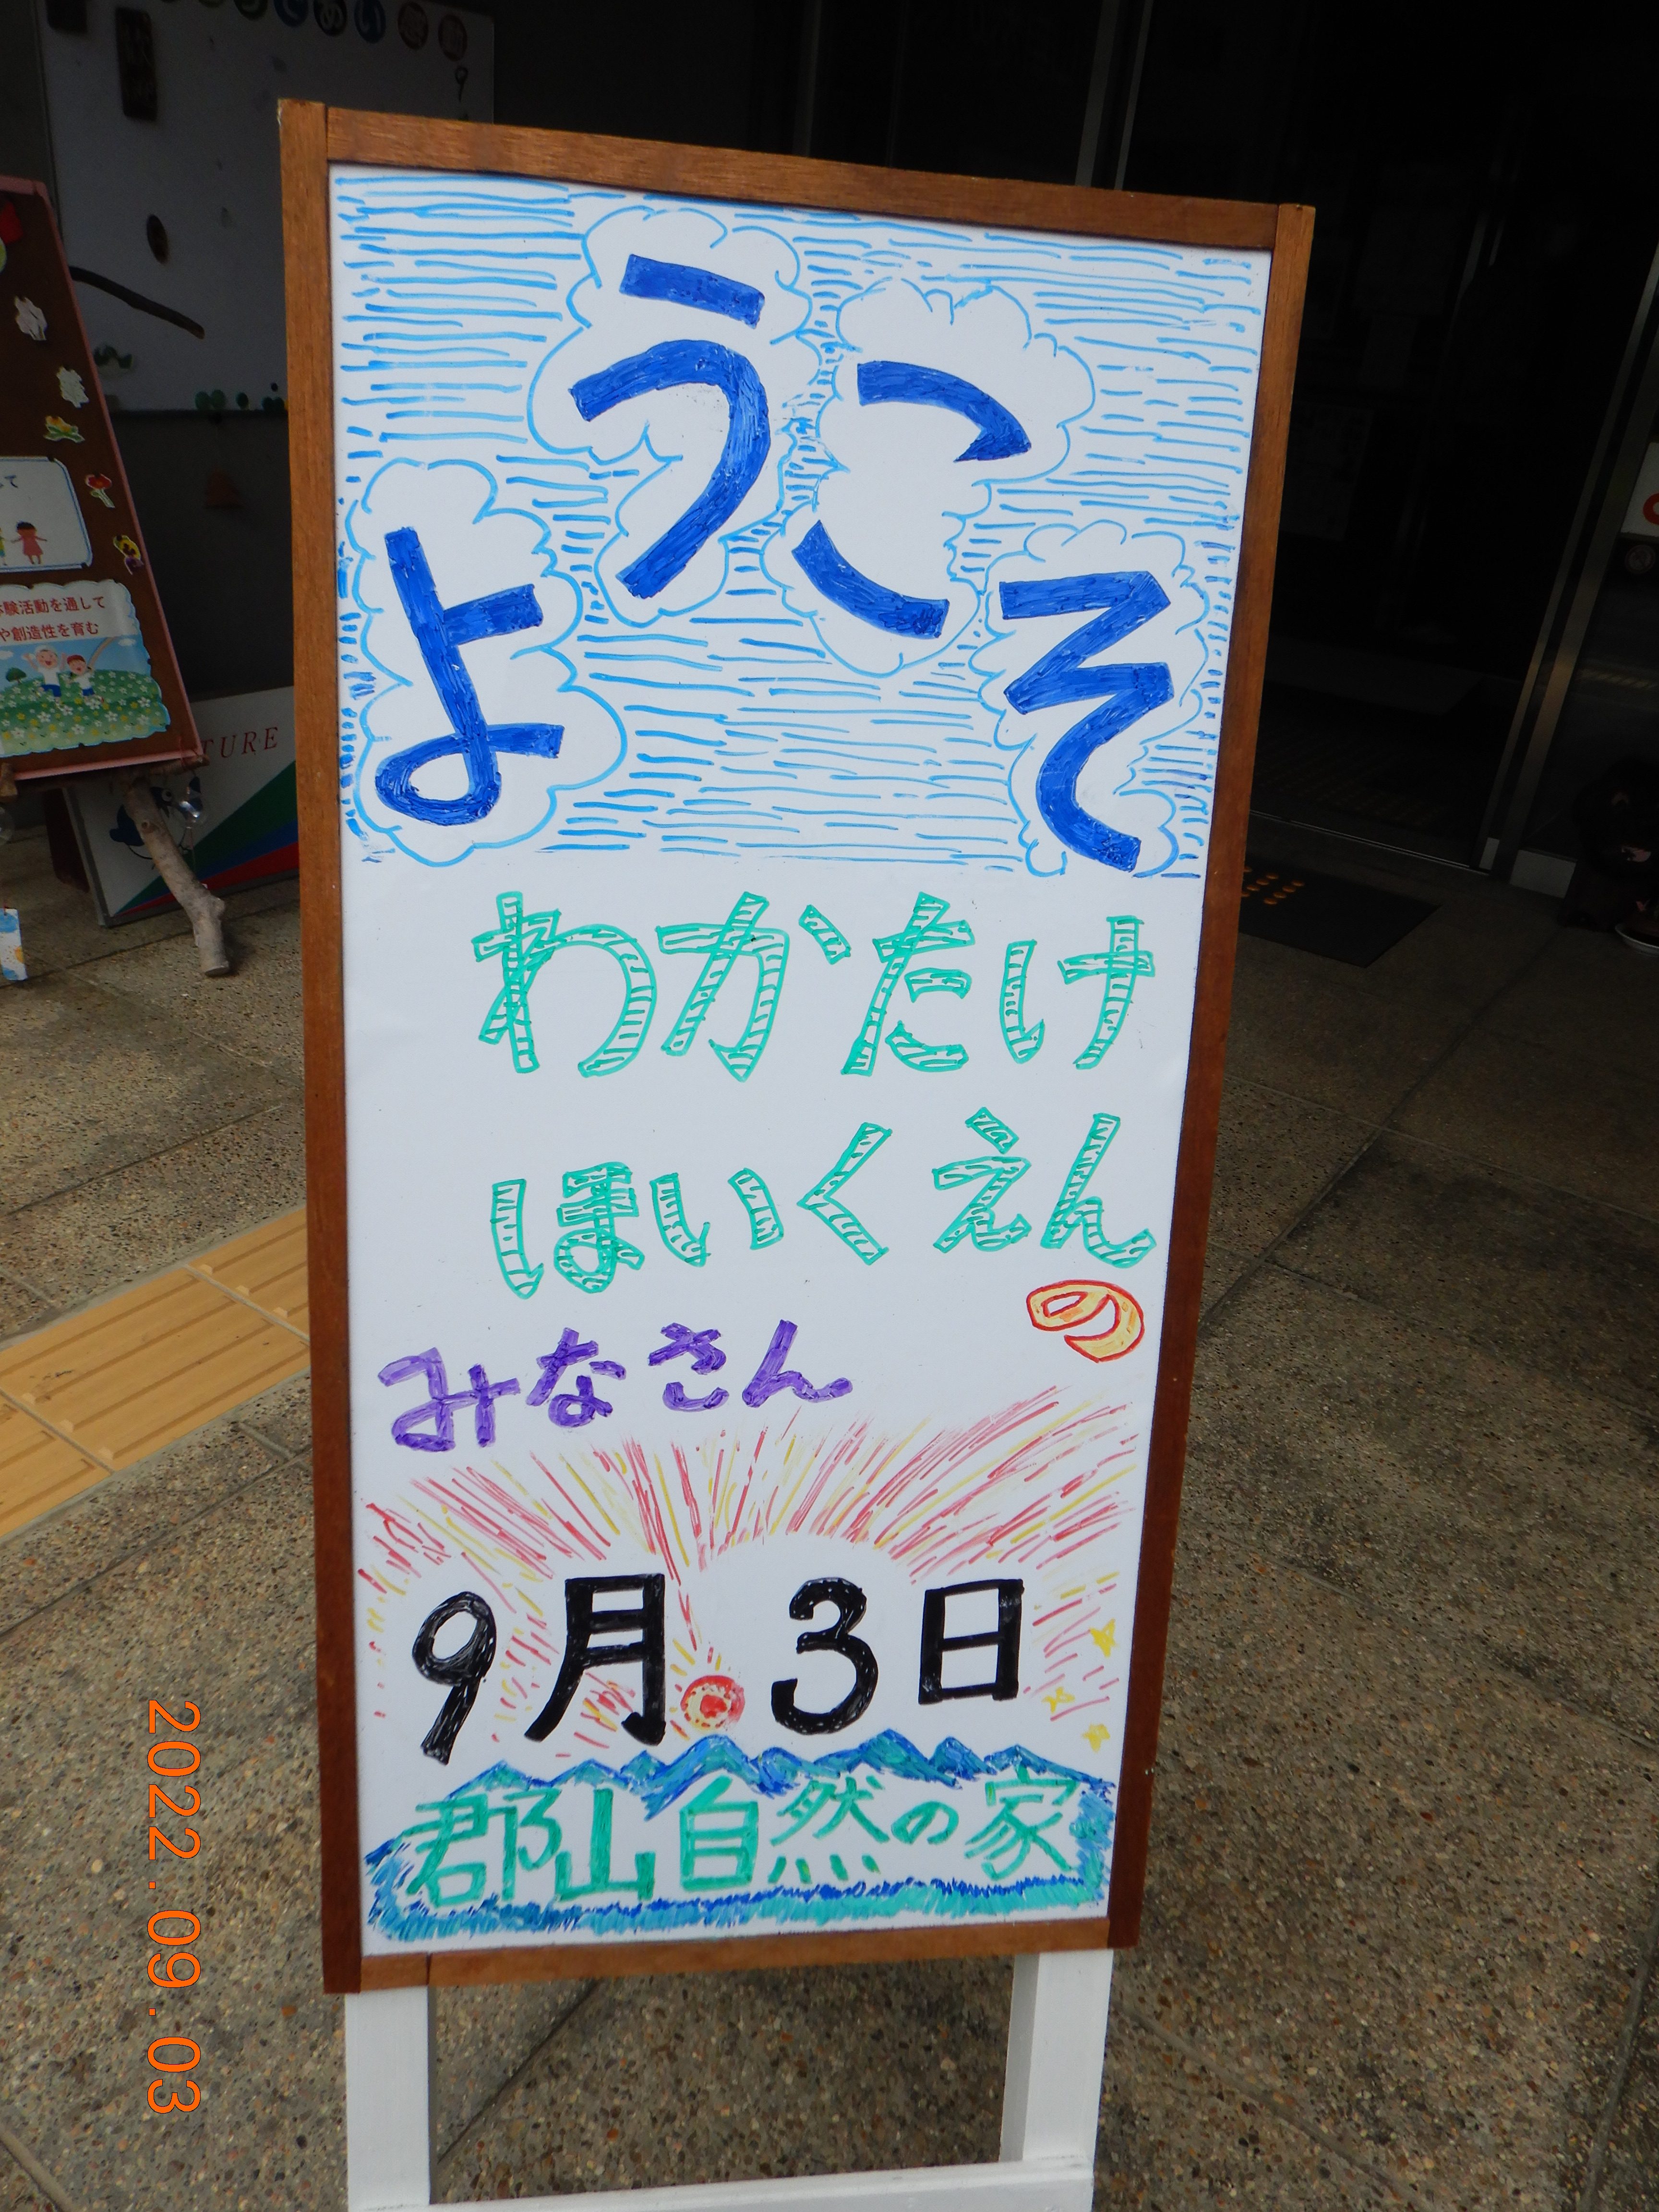 ようこそ
わかたけ
ほいくえん
の
みなさん
9月3日
郡山自然の家
て
験活動を通して
や創造性を育む
TURE
9
2022.09.03